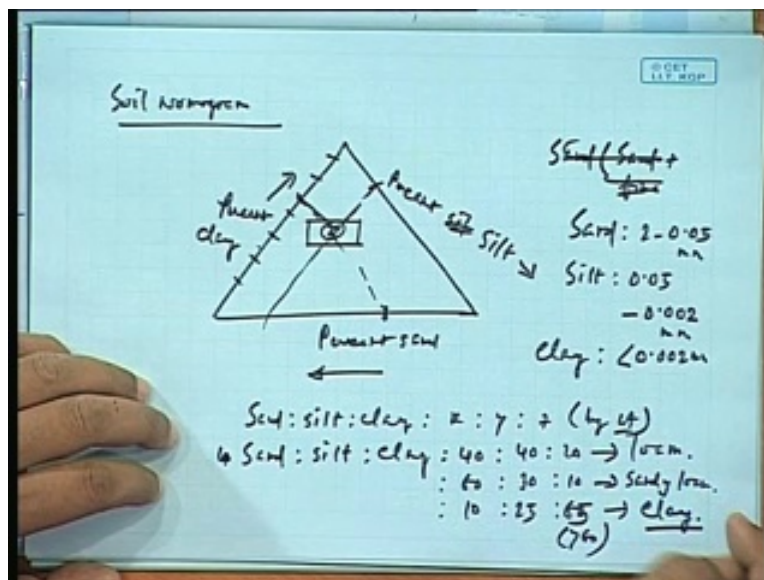 © CET
I.I.T. KGP
Soil nomogram
Sand +
Percent
clay
Percent Silt
Percent sand
Sand: 2-0.05
mm
Silt: 0.05
-0.002
mm
Clay: <0.002m
Sand: silt: clay: x : y : z (by wt)
Sand: silt: clay: 40 : 40 : 20 → loam.
: 60 : 30 : 10 → Sandy loam.
: 10 : 25 : 65 → Clay.
(>60)